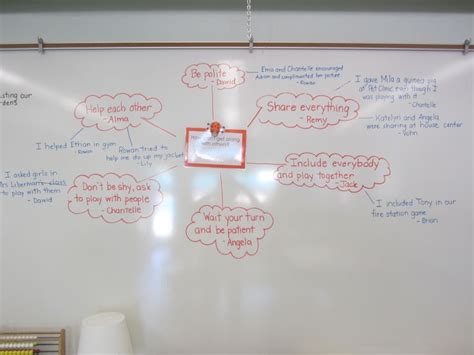 Be polite
- David
Elma and Chantelle encouraged
Adrian and complimented her picture
- Rowan
Help each other
- Alma
I helped Ethan in gym
- Rowan
Rowan tried to
help me do up my jacket
- Lily
Share everything
- Remy
I gave Mila a guinea pig
at Pet Clinic even though I
was playing with it
- Chantelle
Katelyn and Angela
were sharing at house center
- John
Include everybody
and play together
- Jack
I included Tony in our
fire station game
- Brian
Wait your turn
and be patient
- Angela
Don't be shy, ask
to play with people
- Chantelle
I asked girls in
class
to play with them
- David